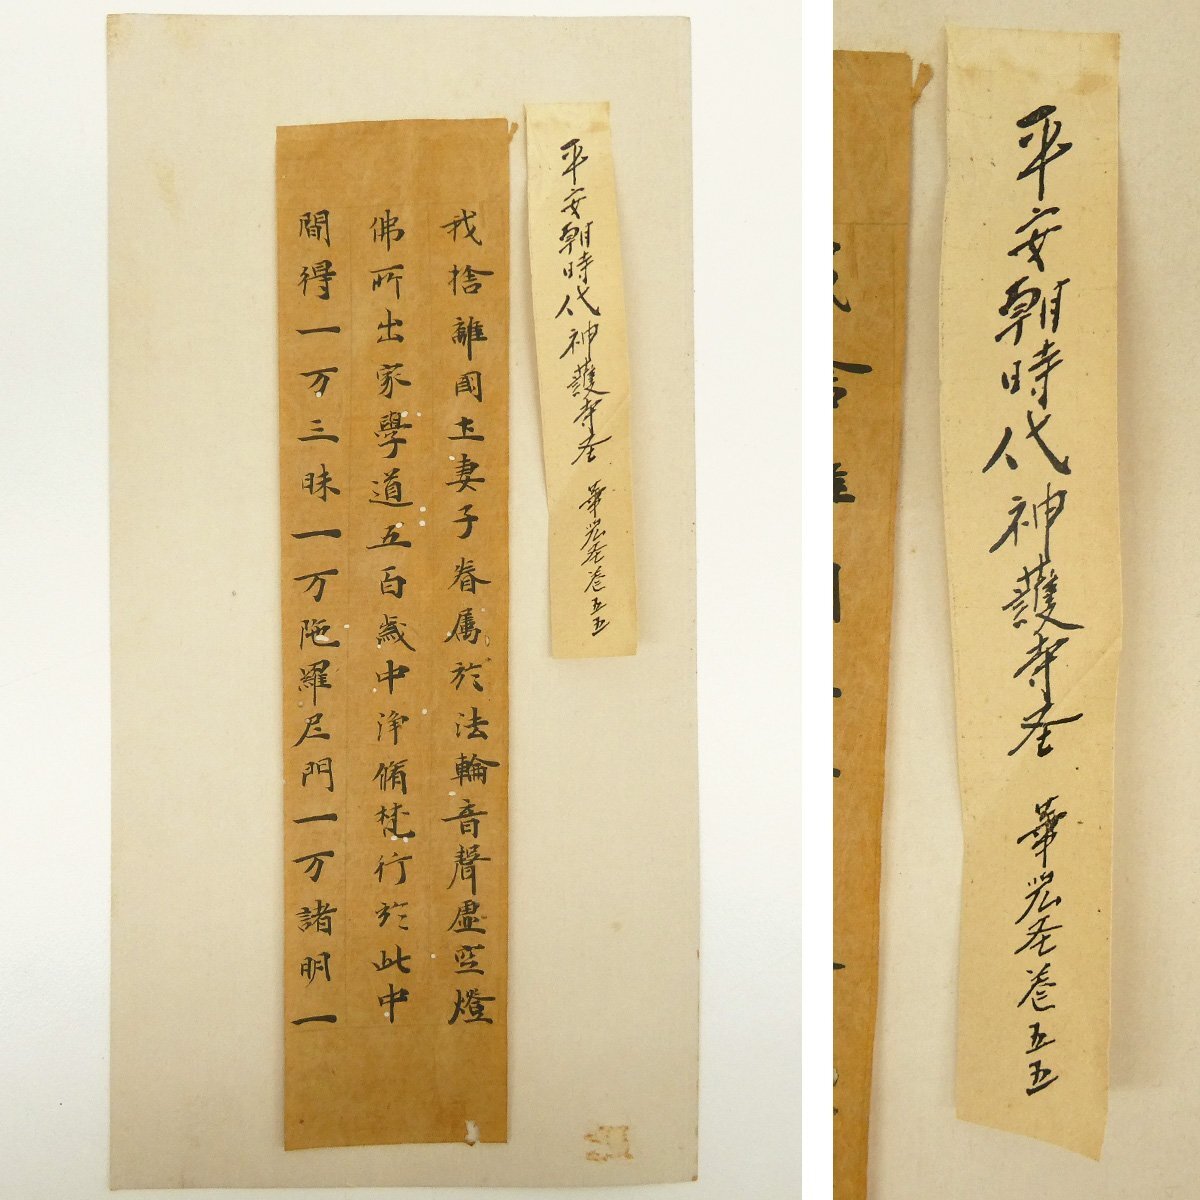 平安朝時代神護寺圣 華严圣巻五五
我捨離國土妻子眷属於法輪音聲虛空燈
佛所出家學道五百歳中淨脩梵行於此中
間得一万三昧一万陁羅尼門一万諸明一
平安朝時代神護寺圣 華严圣巻五五